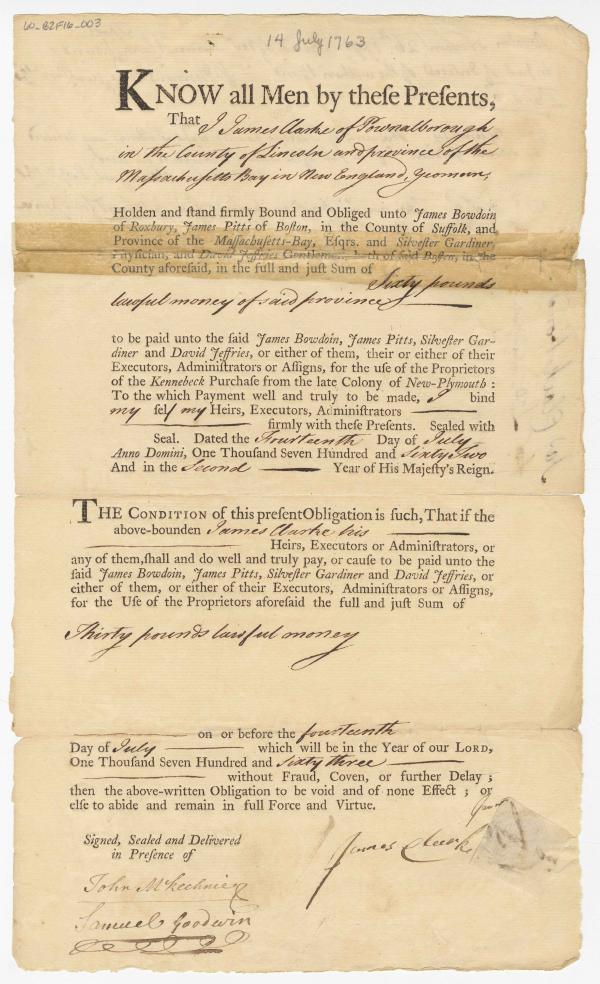 60_82F16_003
14 July 1763
KNOW all Men by theſe Preſents,
That I James Clarke of Pownalborough
in the County of Lincoln and province of the
Maſsachusetts Bay in New England, Yeoman,
Holden and ſtand firmly Bound and Obliged unto James Bowdoin
of Roxbury, James Pitts of Boſton, in the County of Suffolk, and
Province of the Maſſachuſetts-Bay, Eſqrs. and Silveſter Gardiner,
Phyſician, and David Jeffries Gentleman, both of ſaid Boſton, in the
County aforeſaid, in the full and juſt Sum of
Sixty pounds
lawful money of said province
to be paid unto the ſaid James Bowdoin, James Pitts, Silveſter Gar-
diner and David Jeffries, or either of them, their or either of their
Executors, Adminiſtrators or Aſſigns, for the uſe of the Proprietors
of the Kennebeck Purchaſe from the late Colony of New-Plymouth :
To the which Payment well and truly to be made, I bind
my ſelf my Heirs, Executors, Adminiſtrators
firmly with theſe Preſents. Sealed with
Seal. Dated the Fourteenth Day of July
Anno Domini, One Thouſand Seven Hundred and Sixty Two
And in the Second Year of His Majeſty's Reign.
THE CONDITION of this preſent Obligation is ſuch, That if the
above-bounden James Clarke his
Heirs, Executors or Adminiſtrators, or
any of them, ſhall and do well and truly pay, or cauſe to be paid unto the
ſaid James Bowdoin, James Pitts, Silveſter Gardiner and David Jeffries, or
either of them, or either of their Executors, Adminiſtrators or Aſſigns,
for the Uſe of the Proprietors aforeſaid the full and juſt Sum of
Thirty pounds lawful money
on or before the fourteenth
Day of July which will be in the Year of our LORD,
One Thouſand Seven Hundred and Sixty three
without Fraud, Coven, or further Delay ;
then the above-written Obligation to be void and of none Effect ; or
elſe to abide and remain in full Force and Virtue.
Signed, Sealed and Delivered
in Preſence of
James Clark
John McKechnie
Samuel Goodwin